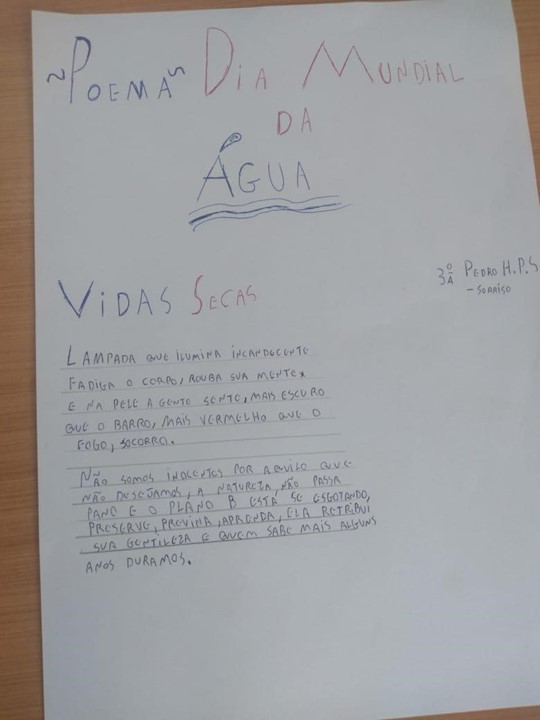 ~Poema~ Dia Mundial
da
Água
3ºA Pedro H.P.S
- Sorriso
Vidas Secas
Lampada que ilumina incandecente
fadiga o corpo, rouba sua mente,
e na pele a gente sente, mais escuro
que o barro, mais vermelho que o
fogo, socorro.
Não somos inocentes por aquilo que
não desejamos, a natureza não passa
pano e o plano B está se esgotando,
preserve, previna, aprenda, ela retribui
sua gentileza e quem sabe mais alguns
anos duramos.